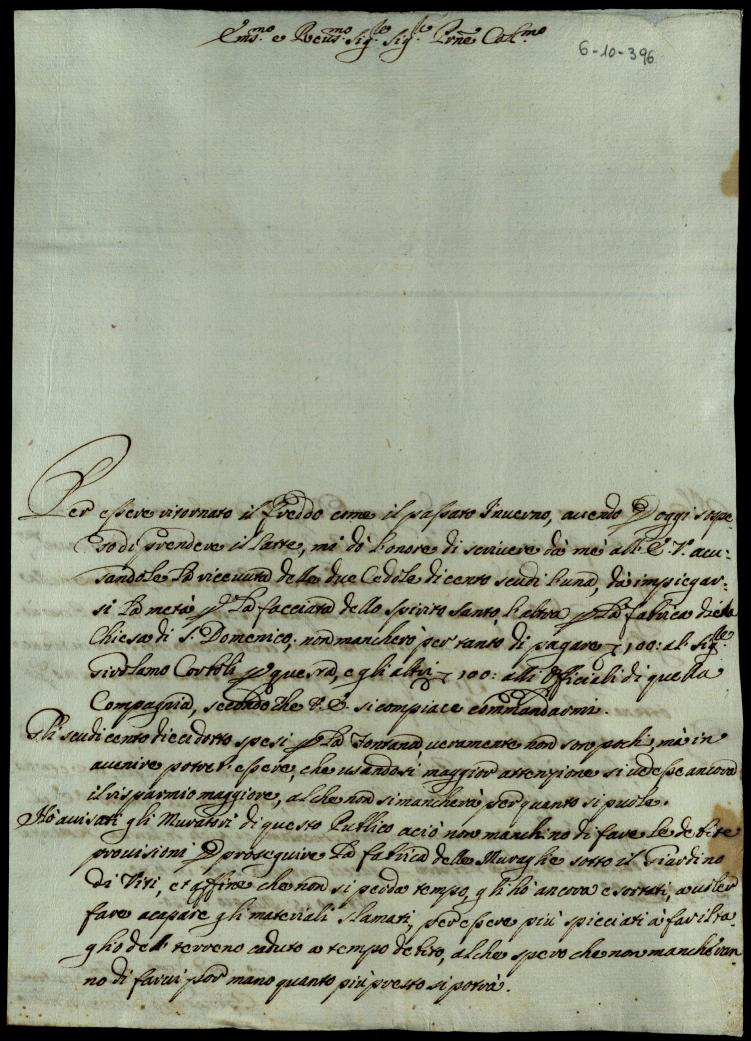 Em.mo e Reu.mo Sig.re Sig.re Prñe Col.mo
6-10-396
Per essere ritornato il freddo come il passato Inuerno, auendo p oggi sospe-
so di prendere il latte, mi dò l'onore di scriuere da me all'E. V. accu-
sandole la riceuuta delle due Cedole di cento scudi l'una, da impiegar-
si la metà p la facciata dello Spirito Santo, l'altra p la fabrica della
Chiesa di S. Domenico; non mancherò per tanto di pagare 100: al Sig.re
Girolamo Cortoli p questa, e gli altri 100: alli Officiali di quella
Compagnia, secondo che V. E. si compiace commandarmi.
Gli scudi cento dieciotto spesi p la Fontana, ueramente non sono pochi, mà in
auenire potrebbe essere, che usandosi maggior attenzione si uedesse ancora
il risparmio maggiore, al che non si mancherà per quanto si puole.
Hò auisati gli Muratori di questo Publico acciò non manchino di fare le debite
prouisioni p proseguire la fabrica delle Muraglie sotto il Giardino
di Viti, et affine che non si perda tempo, gli hò ancora esortati, a uoler
fare acapare gli materiali slamati, per essere più spicciati à far il ta-
glio del terreno caduto a tempo debito, al che spero che non mancheran-
no di farui por mano quanto più presto si potrà.